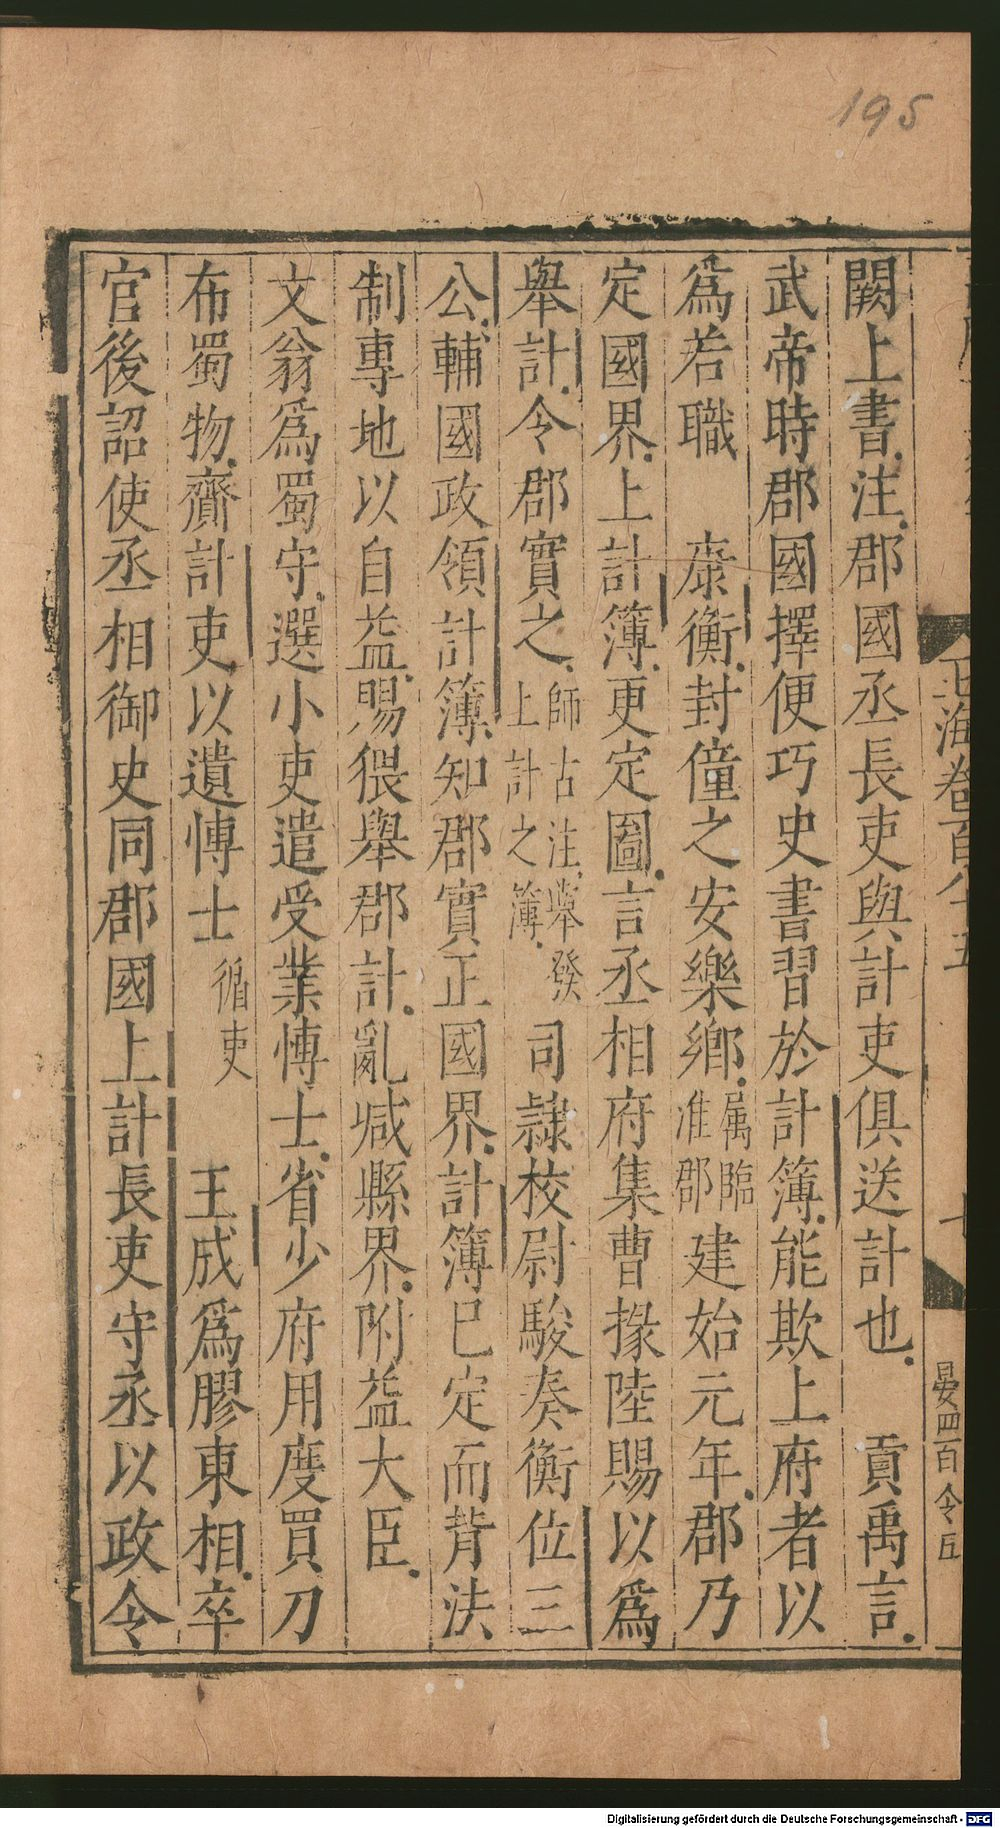 195
闕上書注郡國丞長吏與計吏俱送計也　貢禹言
武帝時郡國擇便巧史書習於計簿能欺上府者以
爲若職　𢊁衡封僮之安樂鄉屬臨准郡建始元年郡乃
定國界上計簿更定圖言丞相府集曹掾陸賜以爲
舉計令郡實之師古注舉發上計之簿司隷校尉駿奏衡位三
公輔國政領計簿知郡實正國界計簿已定而背法
制專地以自益賜猥舉郡計亂減縣界附益大臣
文翁爲蜀守選小吏遣受業愽士省少府用度買刀
布蜀物齎計吏以遺愽士循吏　王成爲膠東相卒
官後詔使丞相御史同郡國上計長吏守丞以政令
玉海卷百八十五
晏四百令五
Digitalisierung gefördert durch die Deutsche Forschungsgemeinschaft - DFG